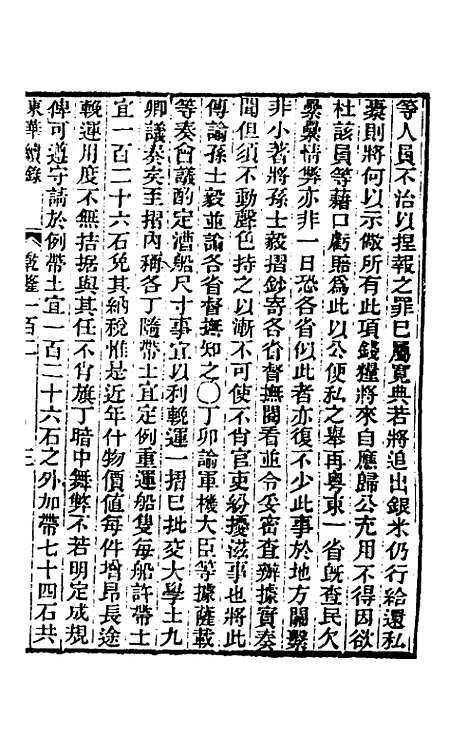 等人員不治以捏報之罪已屬寬典若將追出銀米仍行給還私
橐則將何以示儆所有此項錢糧將來自應歸公充用不得因欲
杜該員等藉口虧賠為此以公便私之舉再粵東一省旣查民欠
纍纍情弊亦非一日恐各省似此者亦復不少此事於地方關繫
非小著將孫士毅摺鈔寄各省督撫閱看並令妥密查辦據實奏
聞但須不動聲色持之以漸不可使不肖官吏紛擾滋事也將此
傳諭孫士毅並諭各省督撫知之○丁卯諭軍機大臣等據薩載
等奏會議酌定漕船尺寸事宜以利輓運一摺已批交大學士九
卿議奏矣至摺內稱各丁隨帶土宜定例重運船隻每船許帶土
宜一百二十六石免其納稅惟是近年什物價值每件增昂長途
輓運用度不無拮据與其任不肖旗丁暗中舞弊不若明定成規
俾可遵守請於例帶土宜一百二十六石之外加帶七十四石共
東華續錄 乾隆一百二 三